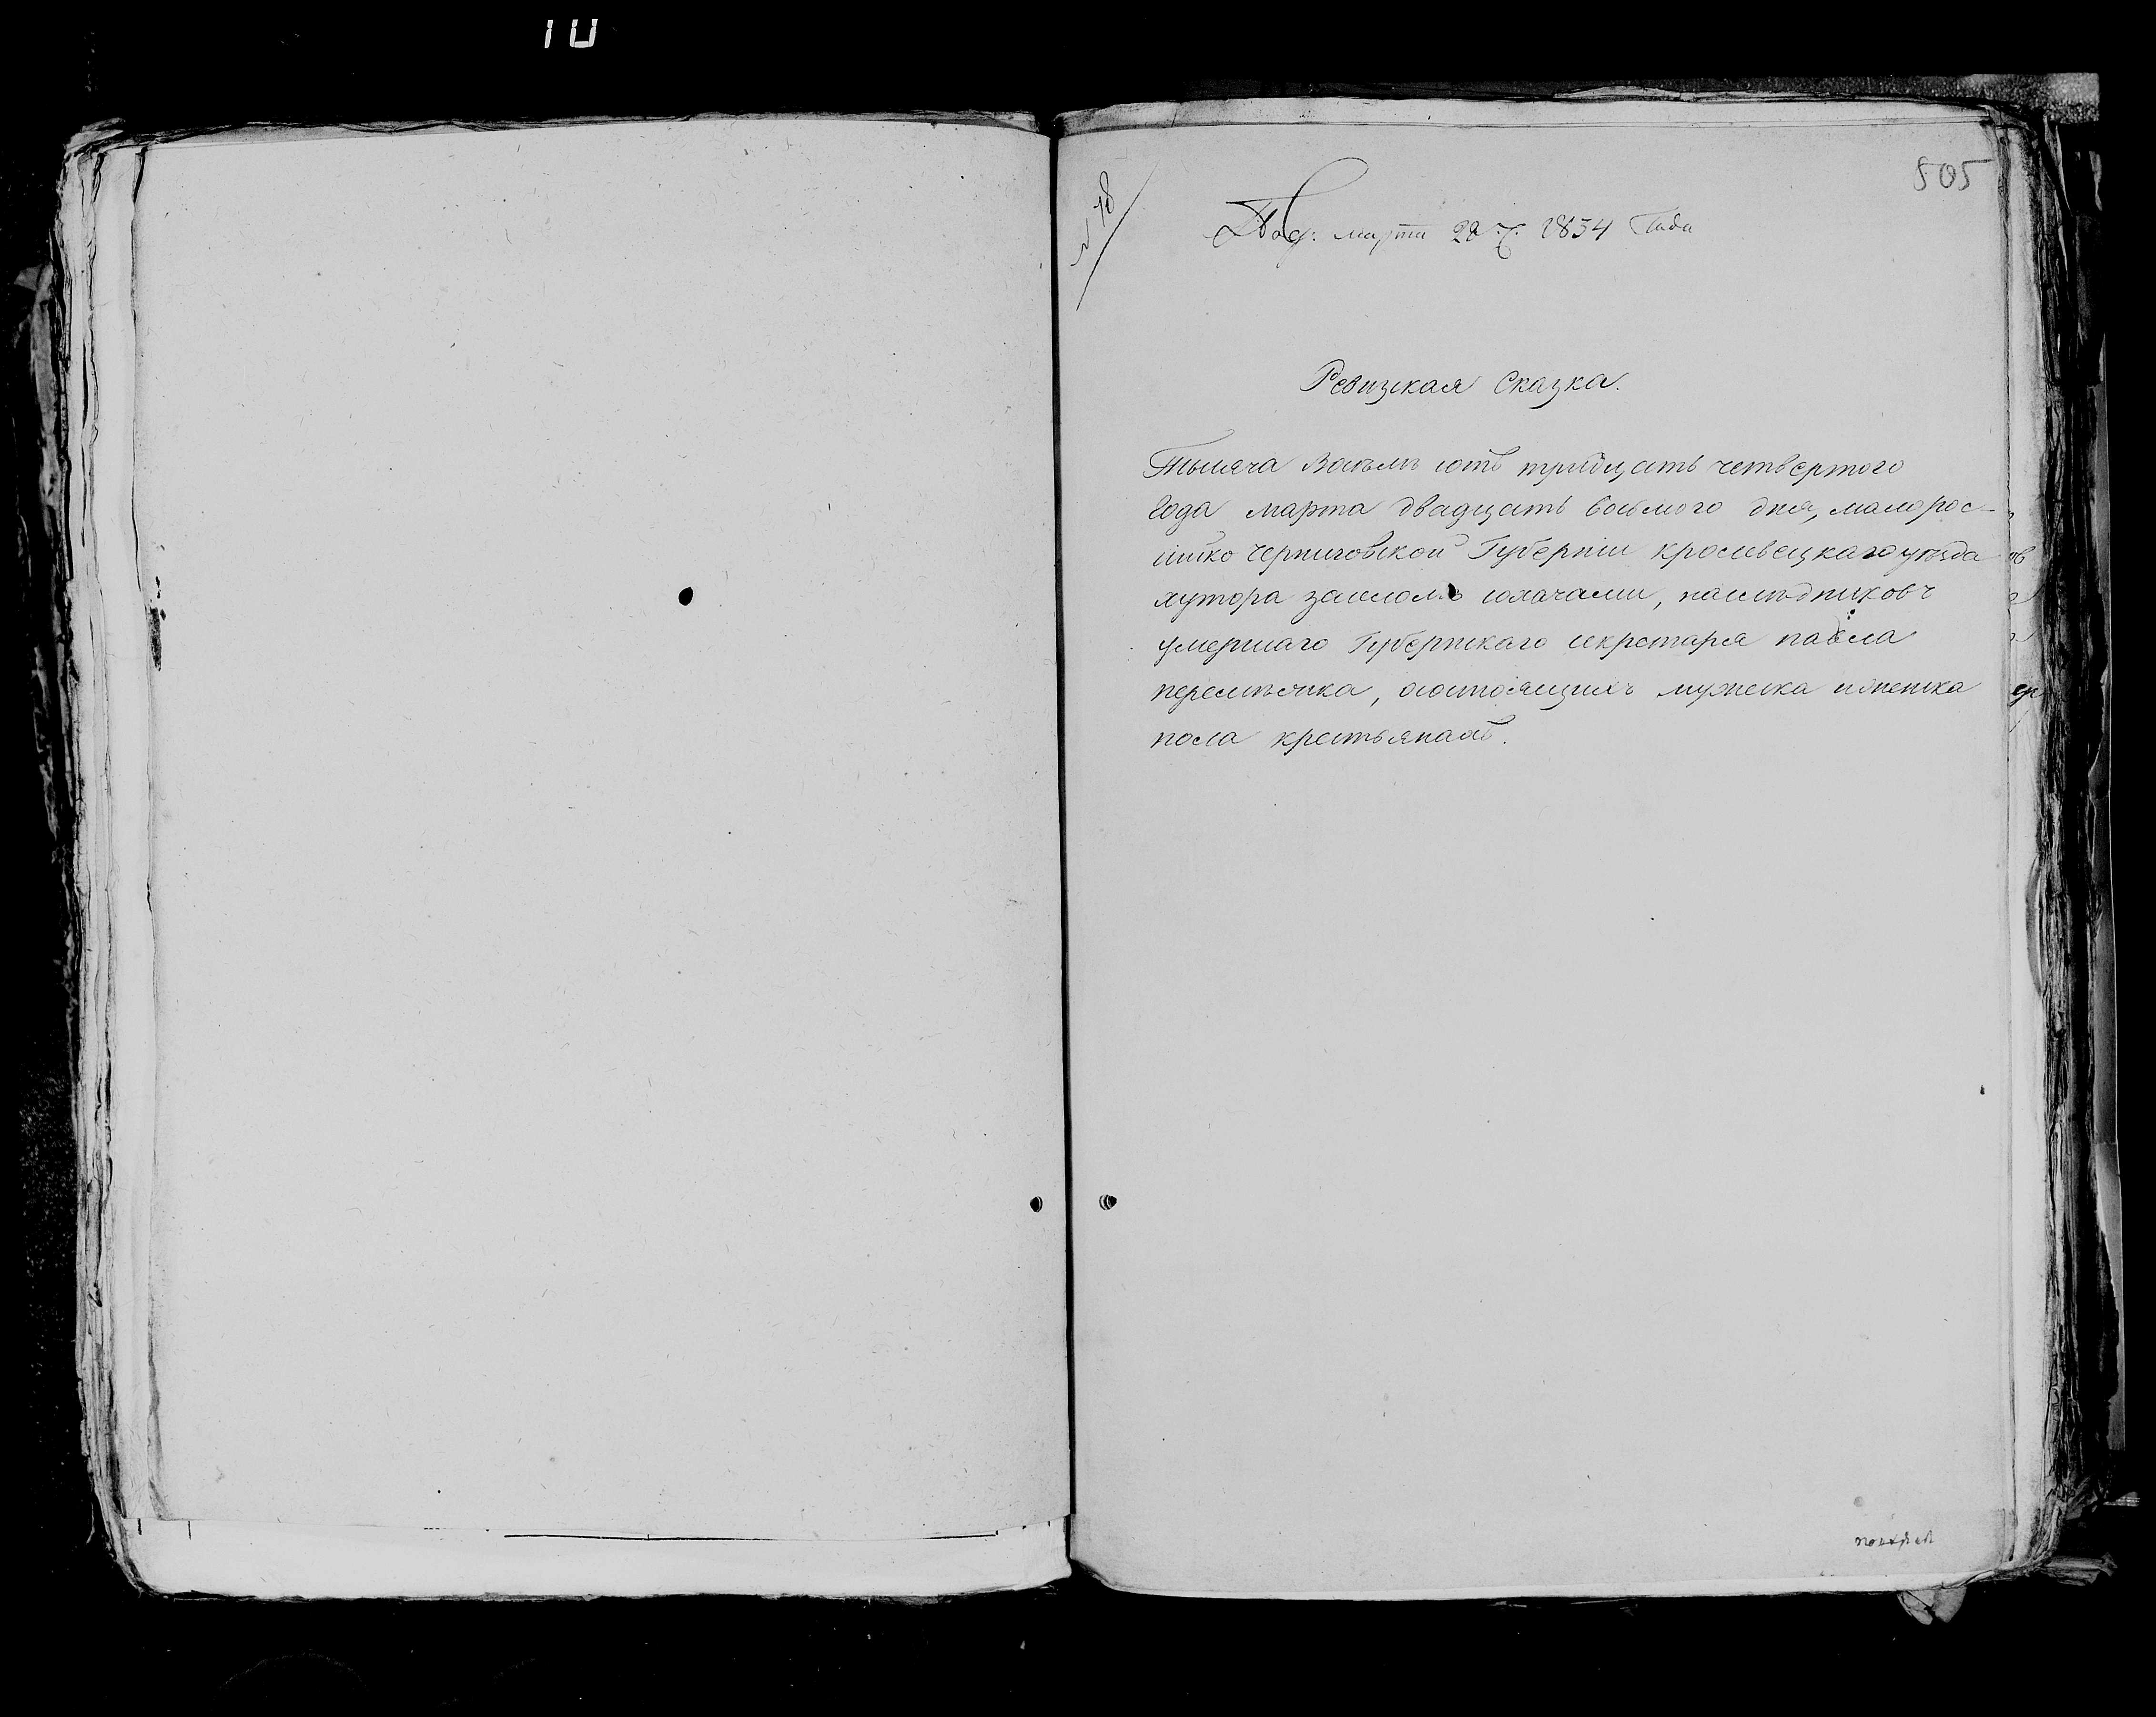 10
505
№ 78
Под. марта 28 ч. 1834 Года
Ревизская Сказка.
Тысяча Восемь сотъ тридцать четвертого
Года марта двадцать восьмого дня, малорос-
ийско Черниговской Губернии кролевецкаго уезда
хутора наследниковъ
умершаго Губернскаго секретаря павла
состоящихъ мужеска иженска
пола крестьянахъ.